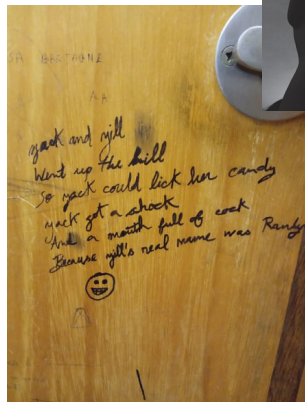 SA BARTAGNE
AA
yack and yjill
Went up the hill
So yack could lick her candy
yack got a shock
And a mouth full of cock
Because yjill's real name was Randy